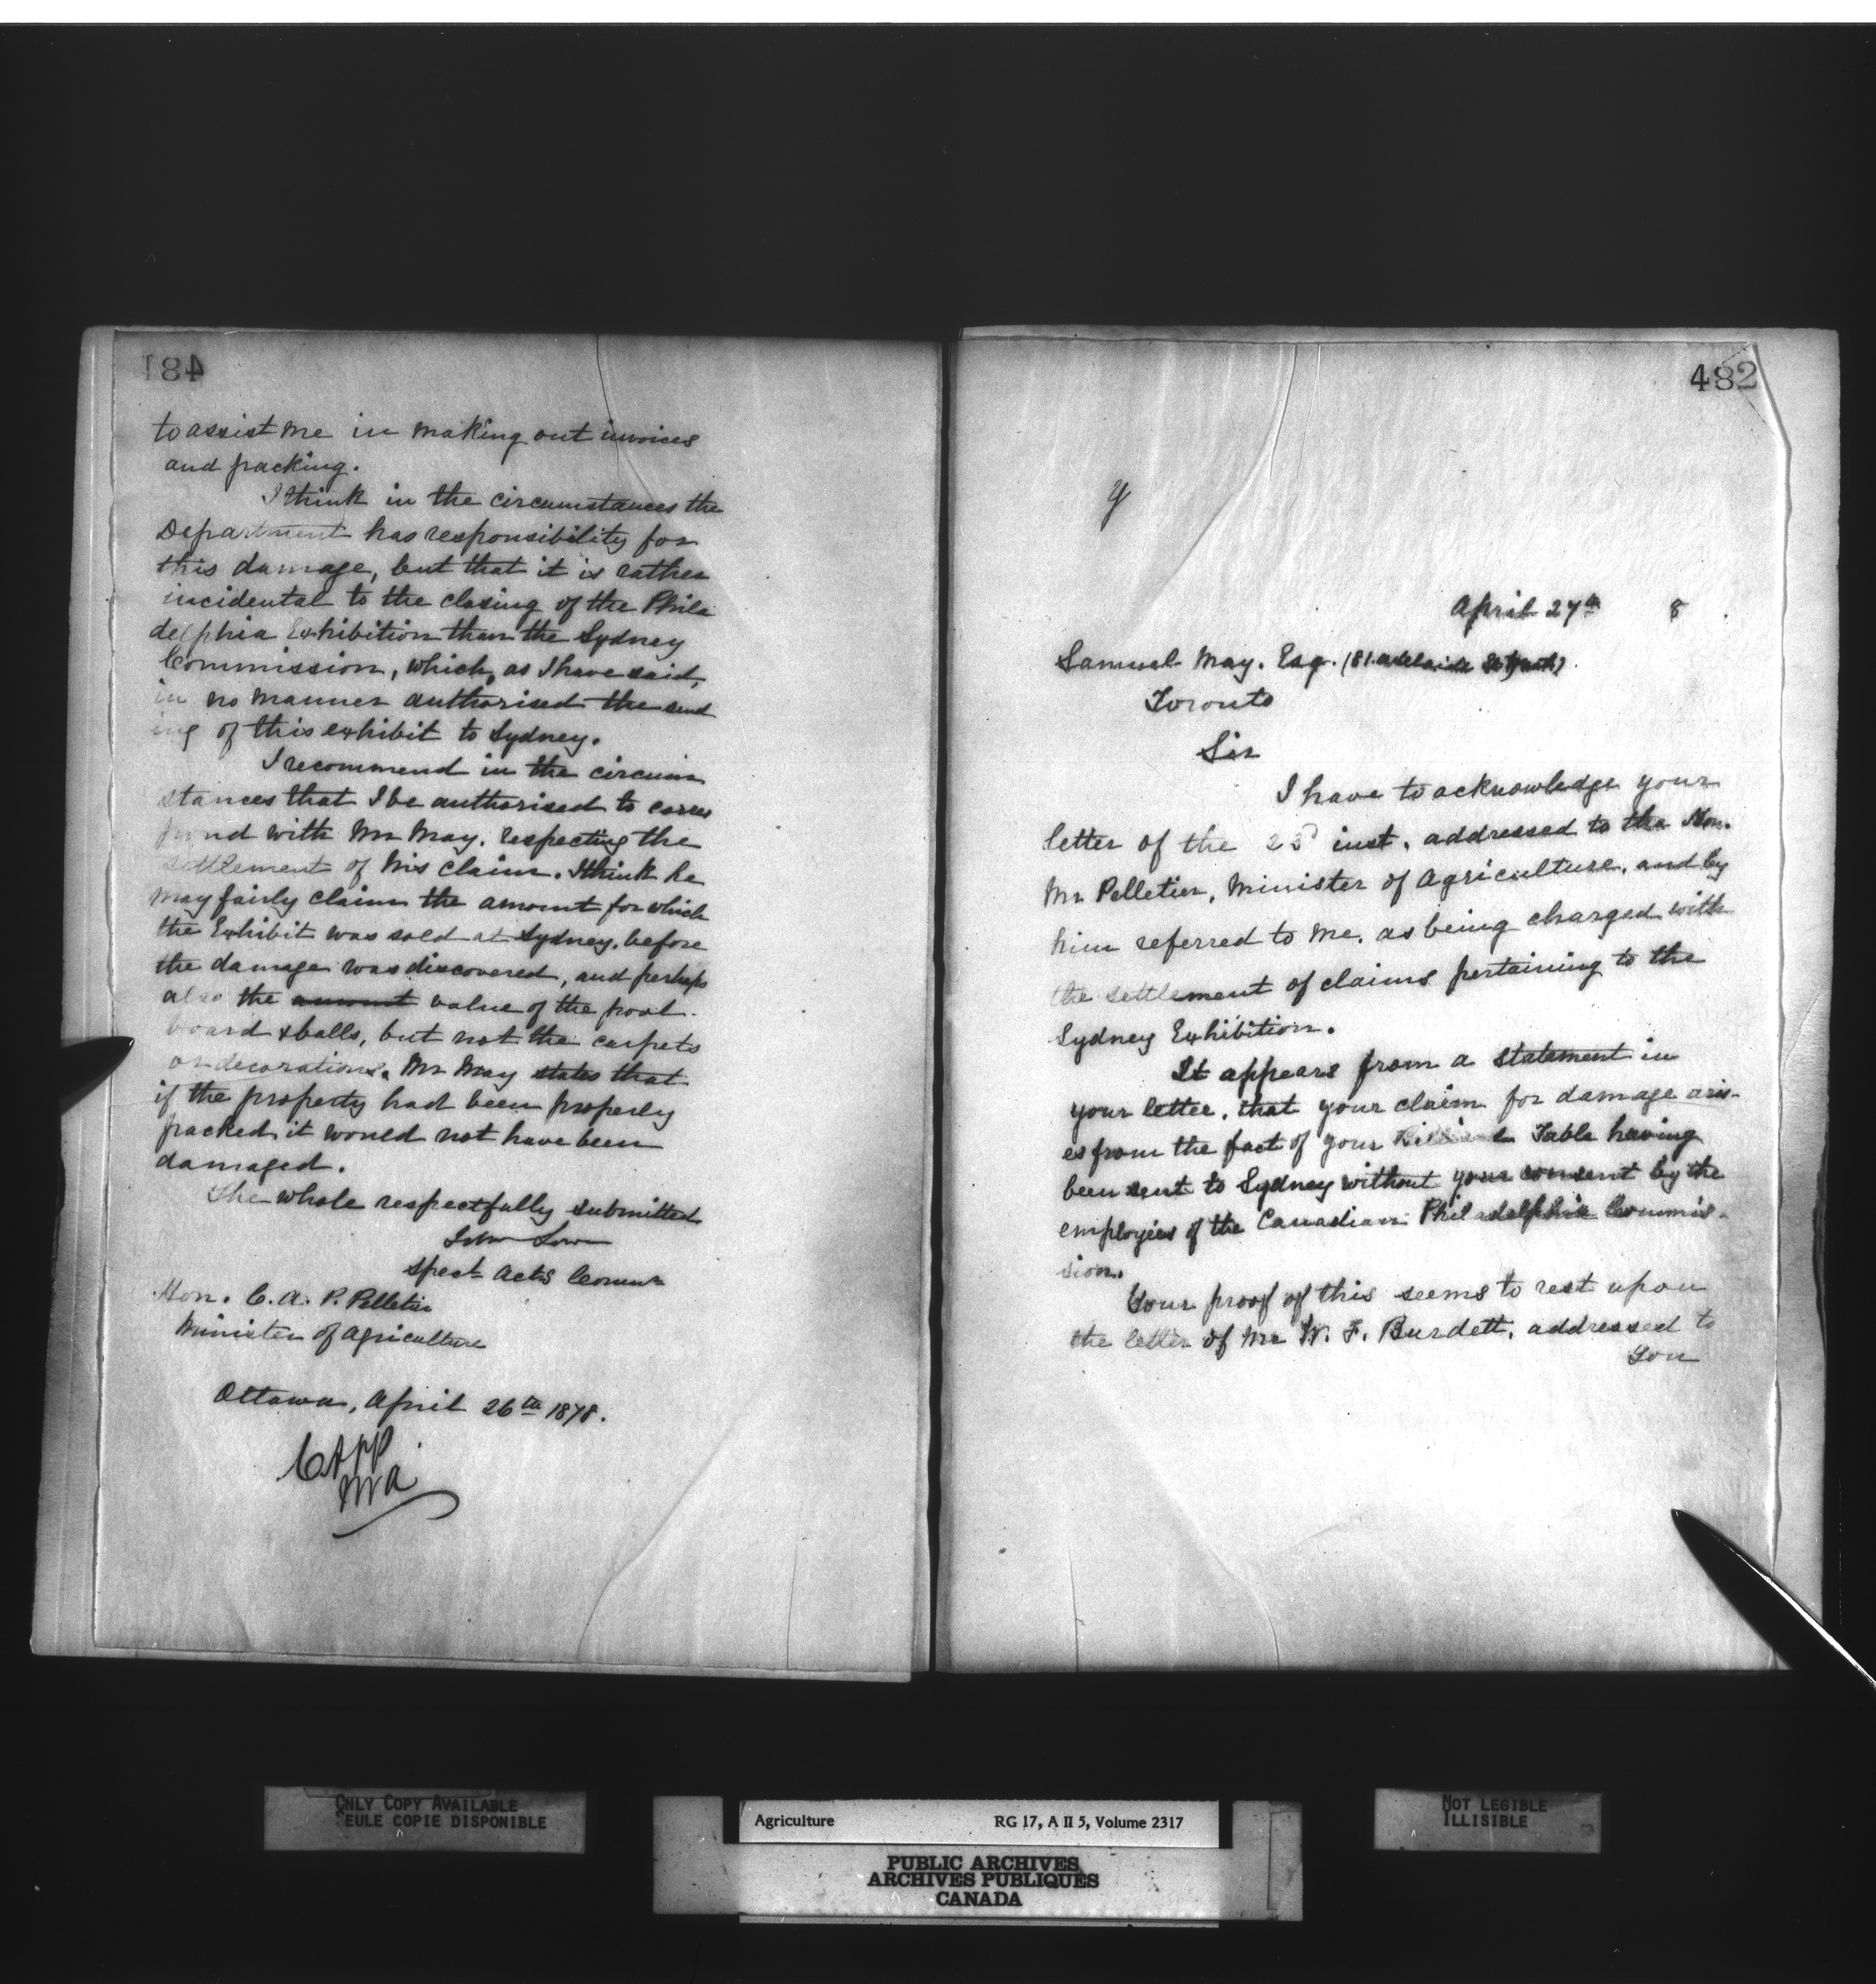 481
to assist me in making out invoices
and packing.
I think in the circumstances the
Department has responsibility for
this damage, but that it is rather
incidental to the closing of the Phila
delphia Exhibition than the Sydney
Commission, which, as I have said,
in no manner authorised the send
ing of this exhibit to Sydney.
I recommend in the circum
stances that I be authorised to corres
pond with Mr May. respecting the
settlement of his claim. I think he
may fairly claim the amount for which
the Exhibit was sold at Sydney. before
the damage was discovered, and perhaps
also the amount value of the pool-
board & balls, but not the carpets
or decorations. Mr May states that
if the property had been properly
packed it would not have been
damaged.
The whole respectfully submitted
John Lowe
Spect Acts Commr
Hon. C. A. P. Pelletier
Minister of Agriculture
Ottawa, April 26th 1878.
CAPP
MA
482
y
April 27th 8
Samuel May. Esq. (81. Adelaide St
Toronto
Sir
I have to acknowledge your
letter of the 23d inst. addressed to the Hon.
Mr Pelletier, Minister of Agriculture, and by
him referred to me. as being charged with
the settlement of claims pertaining to the
Sydney Exhibition.
It appears from a statement in
your letter, that your claim for damage aris-
es from the fact of your Billiard Table having
been sent to Sydney without your consent by the
employées of the Canadian Philadelphia Commis-
sion.
Your proof of this seems to rest upon
the letter of Mr W. F. Burdett, addressed to
You
ONLY COPY AVAILABLE
SEULE COPIE DISPONIBLE
Agriculture RG 17, A II 5, Volume 2317
PUBLIC ARCHIVES
ARCHIVES PUBLIQUES
CANADA
NOT LEGIBLE
ILLISIBLE